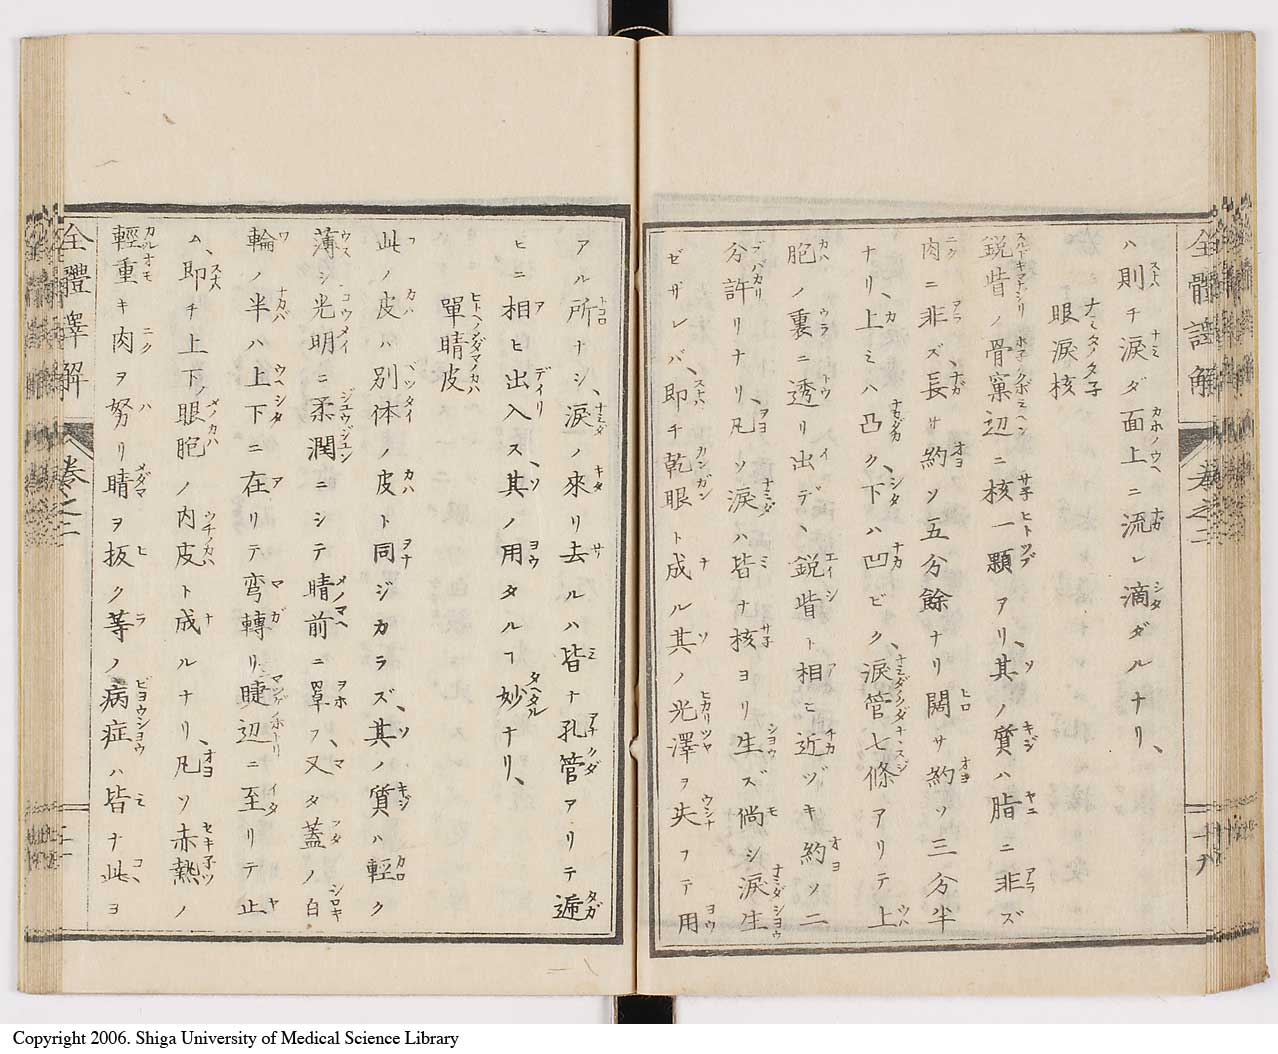 ハ則チ涙ダ面上ニ流レ滴ダルナリ、
眼涙核
鋭眥ノ骨窠辺ニ核一顆アリ、其ノ質ハ脂ニ非ズ
肉ニ非ズ、長サ約ソ五分餘ナリ闊サ約ソ三分半
ナリ、上ミハ凸ク、下ハ凹ビク、涙管七條アリテ上
胞ノ裏ニ透リ出デ、鋭眥ト相ヒ近ヅキ約ソ二
分許リナリ、凡ソ涙ハ皆ナ核ヨリ生ズ倘シ涙生
ゼザレバ、即チ乾眼ト成ル其ノ光澤ヲ失フテ用
アル所ナシ、涙ノ來リ去ルハ皆ナ孔管アリテ遞
ヒニ相ヒ出入ス、其ノ用タルヿ妙ナリ、
單睛皮
此ノ皮ハ別体ノ皮ト同ジカラズ、其ノ質ハ輕ク
薄シ光明ニ柔潤ニシテ睛前ニ罩フ、又タ蓋ノ白
輪ノ半ハ上下ニ在リテ弯轉リ睫辺ニ至リテ止
ム、即チ上下ノ眼胞ノ内皮ト成ルナリ、凡ソ赤熱ノ
輕重キ肉ヲ努リ睛ヲ扳ク等ノ病症ハ皆ナ此ヨ
全體譯解
卷之二
Copyright 2006. Shiga University of Medical Science Library